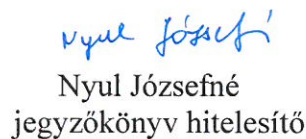 Nyul Józsefné
Nyul Józsefné
jegyzőkönyv hitelesítő